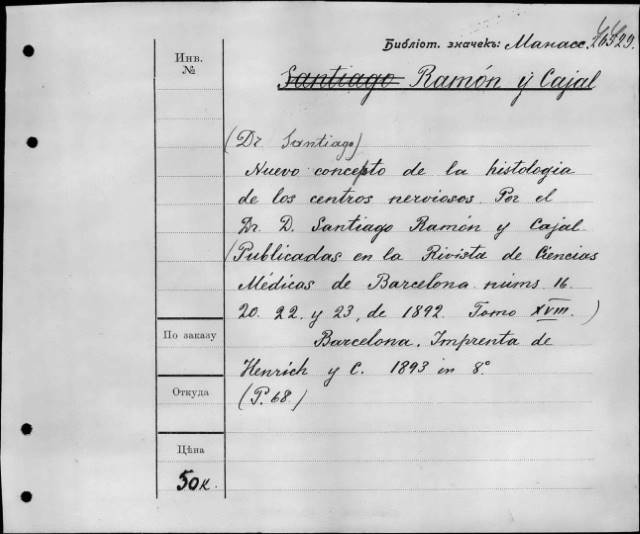 Библіот. значекъ: Манасс.
Инв.
№
Santiago Ramón y Cajal
(Dr. Santiago)
Nuevo concepto de la histologia
de los centros nerviosos. Por el
Dr. D. Santiago Ramón y Cajal
(Publicadas en la Rivista de Ciencias
Médicas de Barcelona núms 16.
20. 22. y 23, de 1892. Tomo XVIII.)
По заказу
Barcelona. Imprenta de
Henrich y C. 1893 in 8°.
Откуда
(P. 68)
Цѣна
50 к.